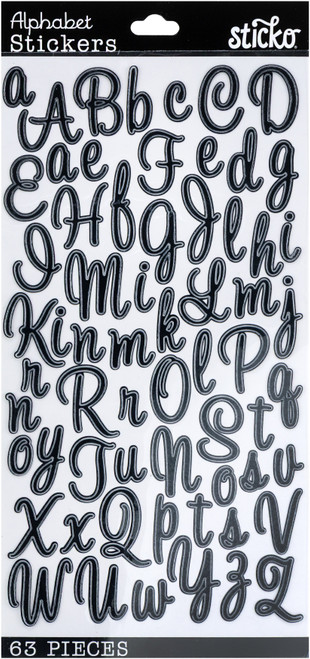 Alphabet
Stickers sticko
a A B b c C D
E a e F e d g
H f g J l h i
I M i L m j
K i n m k l P q
r R r O S t
n o y T u N o s v
X x Q p t s V
W U w Y z Z
63 PIECES